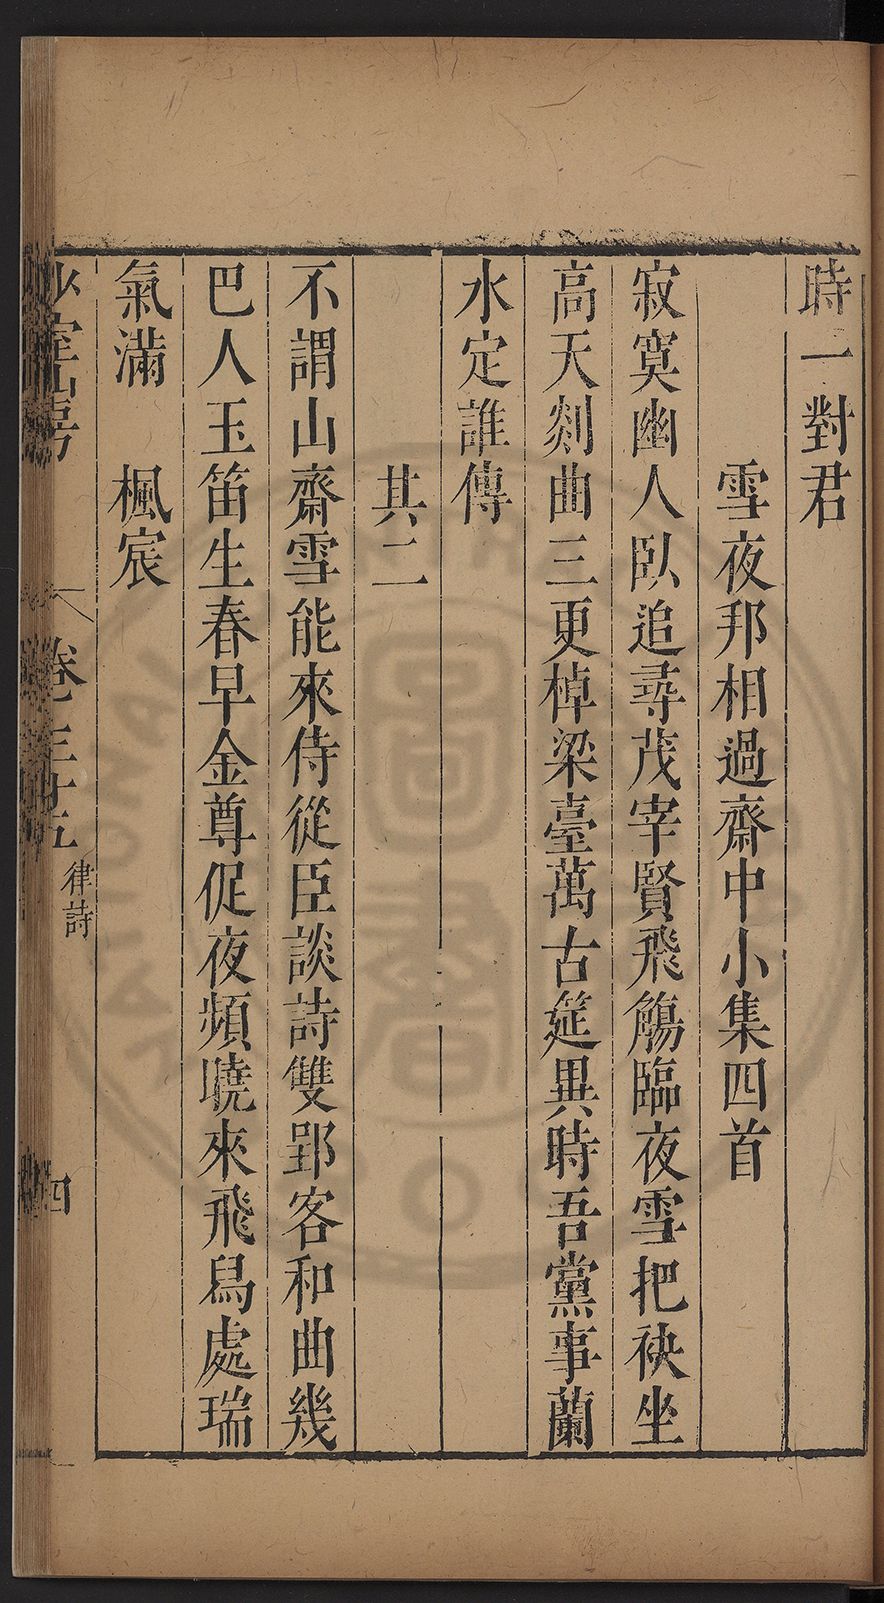 時一對君
雪夜邦相過齋中小集四首
寂寞幽人臥追尋茂宰賢飛觴臨夜雪把袂坐
高天剡曲三更棹梁臺萬古筵異時吾黨事蘭
水定誰傳
其二
不謂山齋雪能來侍從臣談詩雙郢客和曲幾
巴人玉笛生春早金尊促夜頻曉來飛舄處瑞
氣滿　楓宸
少室山房
卷三十五
律詩
四